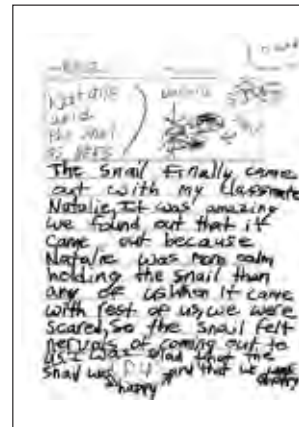 Natalie
and
the snail
The Snail Finally came
out with my classmate
Natalie, It was amazing
we found out that it
came out because
Natalie was more calm
holding the snail than
any of us when it came
with rest of us, we were
scared, So the snail felt
nervous of coming out to
us. I was glad that the
snail was and that we
happy happy